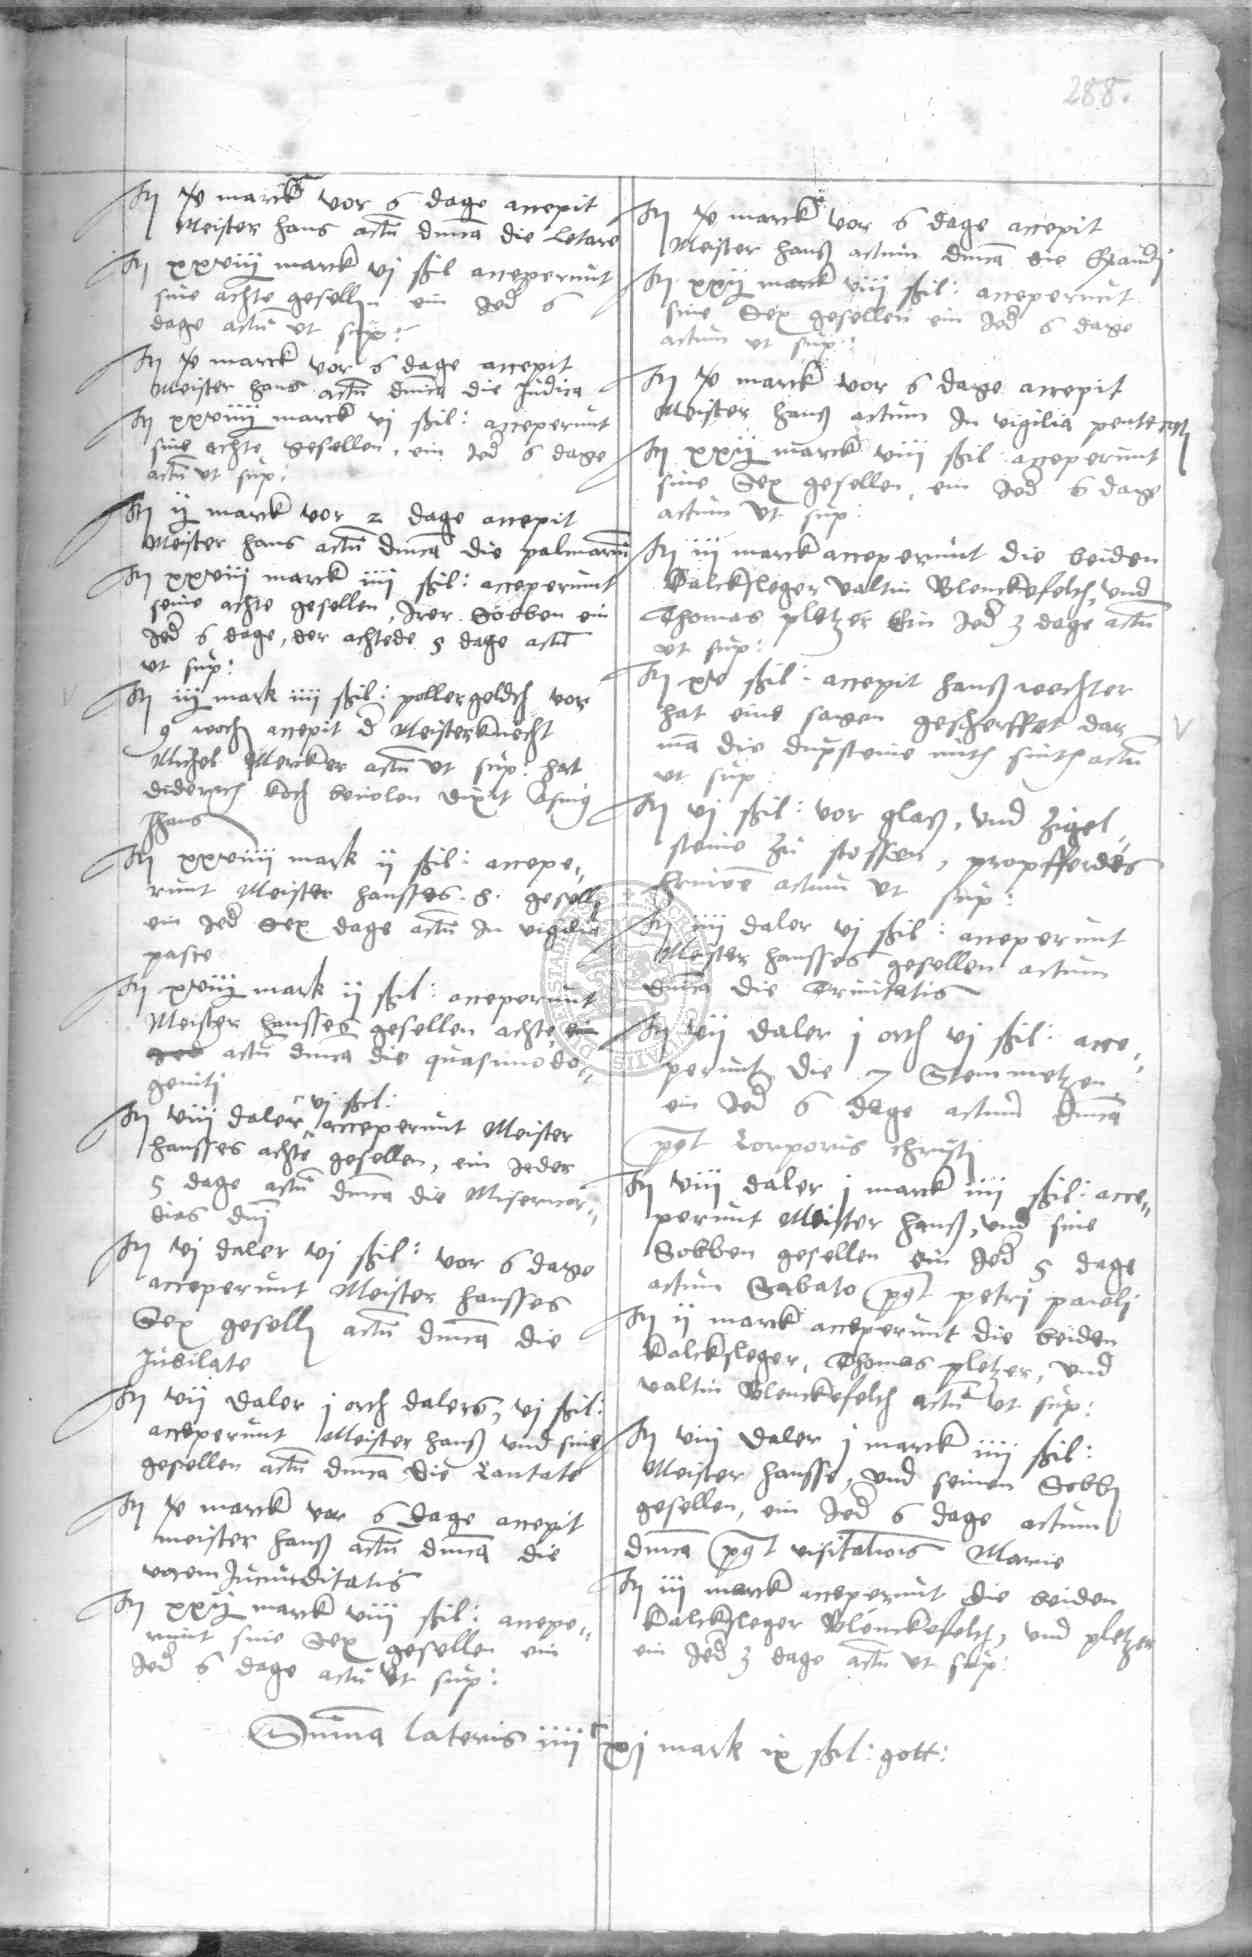 288.
It iv marck vor 6 dage accepit
Meister hans actu dnica die Letare
It xxviij marck vj ßil acceperunt
sine achte gesellen ein Jed 6
dage actu ut sup:
It iv marck vor 6 dage accepit
Meister hans actu dnica die Judica
It xxviiij marck vj ßil: acceperunt
sine achte gesellen, ein Jed 6 dage
actu ut sup:
It ij marck vor 2 dage accepit
Meister hans actu dnica die palmarum
It xxviii marck iiii ßil: acceperunt
seine achte gesellen, Irer Sobben ein
Jed 6 dage, der achtede 5 dage actu
ut sup:
It iij mark iiii ßil: pollergeldt vor
9 woch accepit d Meisterknecht
Michel Mercker actu ut sup: hat
diderich koch bevolen dixit
hans
It xxviiii mark ij ßil: accepe„
runt Meister hansses .8. gesell
ein Jed Sex dage actu In vigilia
pasce
It xviij mark ij ßil: acceperunt
Meister hansses gesellen achte, ein
Jed actu dnica die quasimodo„
geniti
It viii daler vj ßil: acceperunt Meister
hansses achte gesellen, ein Jeder
5 dage actu dnica die Misericor„
dias dni
It vj daler vj ßil: vor 6 dage
acceperunt Meister hansses
Sex gesell actu dnica die
Jubilate
It vii daler j orth dalers, vj ßil:
acceperunt Meister hanß und sine
gesellen actu dnica die Cantate
It iv marck vor 6 dage accepit
meister hanß actu dnica die
vocem Jucunditatis
It xxij marck viii ßil: accepe„
runt sine Sex gesellen ein
Jed 6 dage actu ut sup:
It iv marck vor 6 dage accepit
Meister hanß actum dnica die Exaudi
It xxij marck viii ßil: acceperunt
sine Sex gesellen ein Jed 6 dage
actum ut sup:
It iv marck vor 6 dage accepit
Meister hanß actum In vigilia pentecost
It xxij marck viii ßil: acceperunt
sine Sex gesellen, ein Jed 6 dage
actum ut sup:
It iii marck acceperunt die beiden
Kalcksleger Valtin Blenckefelth, und
Thomas pletzer Ein Jed 3 dage actu
ut sup:
It xv ßil: accepit hanß wechter
hat eine sagen gescherffet dar
ma die dupsteine mith snith actu
ut sup
It vj ßil: vor glaß, und Zigel„
steine Zu stossen, propfferdes
actum ut sup:
It iiii daler vj ßil: acceperunt
Meister hansses gesellen actum
dnica die Trinitatis
It vii daler j orth vj ßil: acce„
perunt die 7 Stemmetzen
ein Jed 6 dage actum dnica
post Corporis christi
It viii daler j marck iiii ßil: acce„
perunt Meister hanß, und sine
Sobben gesellen ein Jed 5 dage
actum Sabato post petri pauli
It ij marck acceperunt die beiden
Kalcksleger, Thomas pletzer, und
valtin Blenckefelth actu ut sup:
It viii daler j marck iiii ßil:
Meister hansse, und seinen Sobb
gesellen, ein Jed 6 dage actum
dnica post visitationis Marie
It iii marck acceperunt die beiden
Kalcksleger Blenckefelth, und pletzer
ein Jed 3 dage actu ut sup:
Summa lateris iiii c xj mark ix ßil: gott: